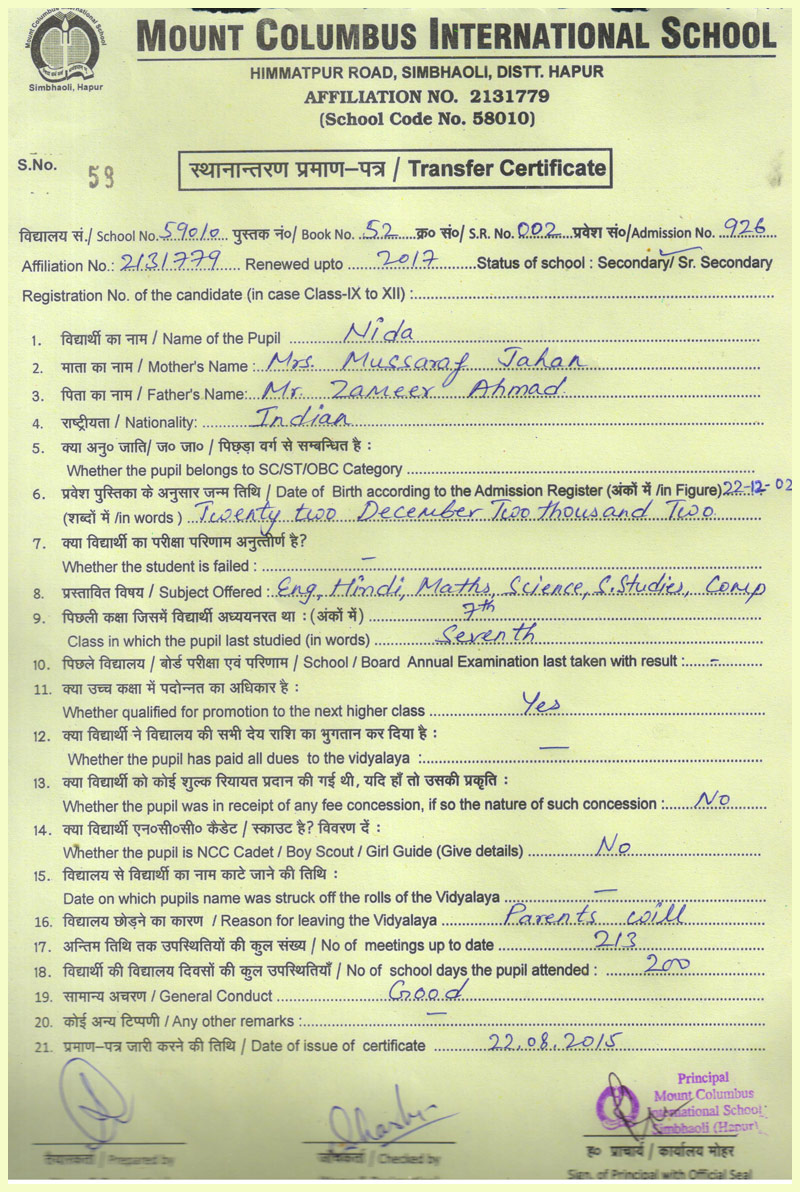 Mount Columbus International School
Simbhaoli, Hapur
MOUNT COLUMBUS INTERNATIONAL SCHOOL
HIMMATPUR ROAD, SIMBHAOLI, DISTT. HAPUR
AFFILIATION NO. 2131779
(School Code No. 58010)
S.No. 58
स्थानान्तरण प्रमाण–पत्र / Transfer Certificate
विद्यालय सं./ School No. 59010 पुस्तक नं०/ Book No. 52 क्र० सं०/ S.R. No. 002 प्रवेश सं०/Admission No. 926
Affiliation No.: 2131779 Renewed upto 2017 Status of school : Secondary/ Sr. Secondary
Registration No. of the candidate (in case Class-IX to XII) :
1. विद्यार्थी का नाम / Name of the Pupil Nida
2. माता का नाम / Mother's Name : Mrs. Mussaraf Jahan
3. पिता का नाम / Father's Name: Mr. Zameer Ahmad
4. राष्ट्रीयता / Nationality: Indian
5. क्या अनु० जाति/ ज० जा० / पिछड़ा वर्ग से सम्बन्धित है :
Whether the pupil belongs to SC/ST/OBC Category
6. प्रवेश पुस्तिका के अनुसार जन्म तिथि / Date of Birth according to the Admission Register (अंकों में /in Figure) 22-12-02
(शब्दों में /in words ) Twenty two December Two thousand Two
7. क्या विद्यार्थी का परीक्षा परिणाम अनुत्तीर्ण है?
Whether the student is failed : –
8. प्रस्तावित विषय / Subject Offered : Eng, Hindi, Maths, Science, S.Studies, Comp
9. पिछली कक्षा जिसमें विद्यार्थी अध्ययनरत था : (अंकों में ) 7th
Class in which the pupil last studied (in words) Seventh
10. पिछले विद्यालय / बोर्ड परीक्षा एवं परिणाम / School / Board Annual Examination last taken with result : –
11. क्या उच्च कक्षा में पदोन्नत का अधिकार है :
Whether qualified for promotion to the next higher class Yes
12. क्या विद्यार्थी ने विद्यालय की सभी देय राशि का भुगतान कर दिया है :
Whether the pupil has paid all dues to the vidyalaya : —
13. क्या विद्यार्थी को कोई शुल्क रियायत प्रदान की गई थी, यदि हाँ तो उसकी प्रकृति :
Whether the pupil was in receipt of any fee concession, if so the nature of such concession : No
14. क्या विद्यार्थी एन०सी०सी० कैडेट / स्काउट है? विवरण दें :
Whether the pupil is NCC Cadet / Boy Scout / Girl Guide (Give details) No
15. विद्यालय से विद्यार्थी का नाम काटे जाने की तिथि :
Date on which pupils name was struck off the rolls of the Vidyalaya —
16. विद्यालय छोड़ने का कारण / Reason for leaving the Vidyalaya Parents will
17. अन्तिम तिथि तक उपस्थितियों की कुल संख्य / No of meetings up to date 213
18. विद्यार्थी की विद्यालय दिवसों की कुल उपस्थितियाँ / No of school days the pupil attended : 200
19. सामान्य अचरण / General Conduct Good
20. कोई अन्य टिप्पणी / Any other remarks : —
21. प्रमाण–पत्र जारी करने की तिथि / Date of issue of certificate 22.08.2015
Principal
Mount Columbus
International School
Simbhaoli (Hapur)
तैयारकर्ता / Prepared by जाँचकर्ता / Checked by ह० प्राचार्य / कार्यालय मोहर
Sign. of Principal with Official Seal